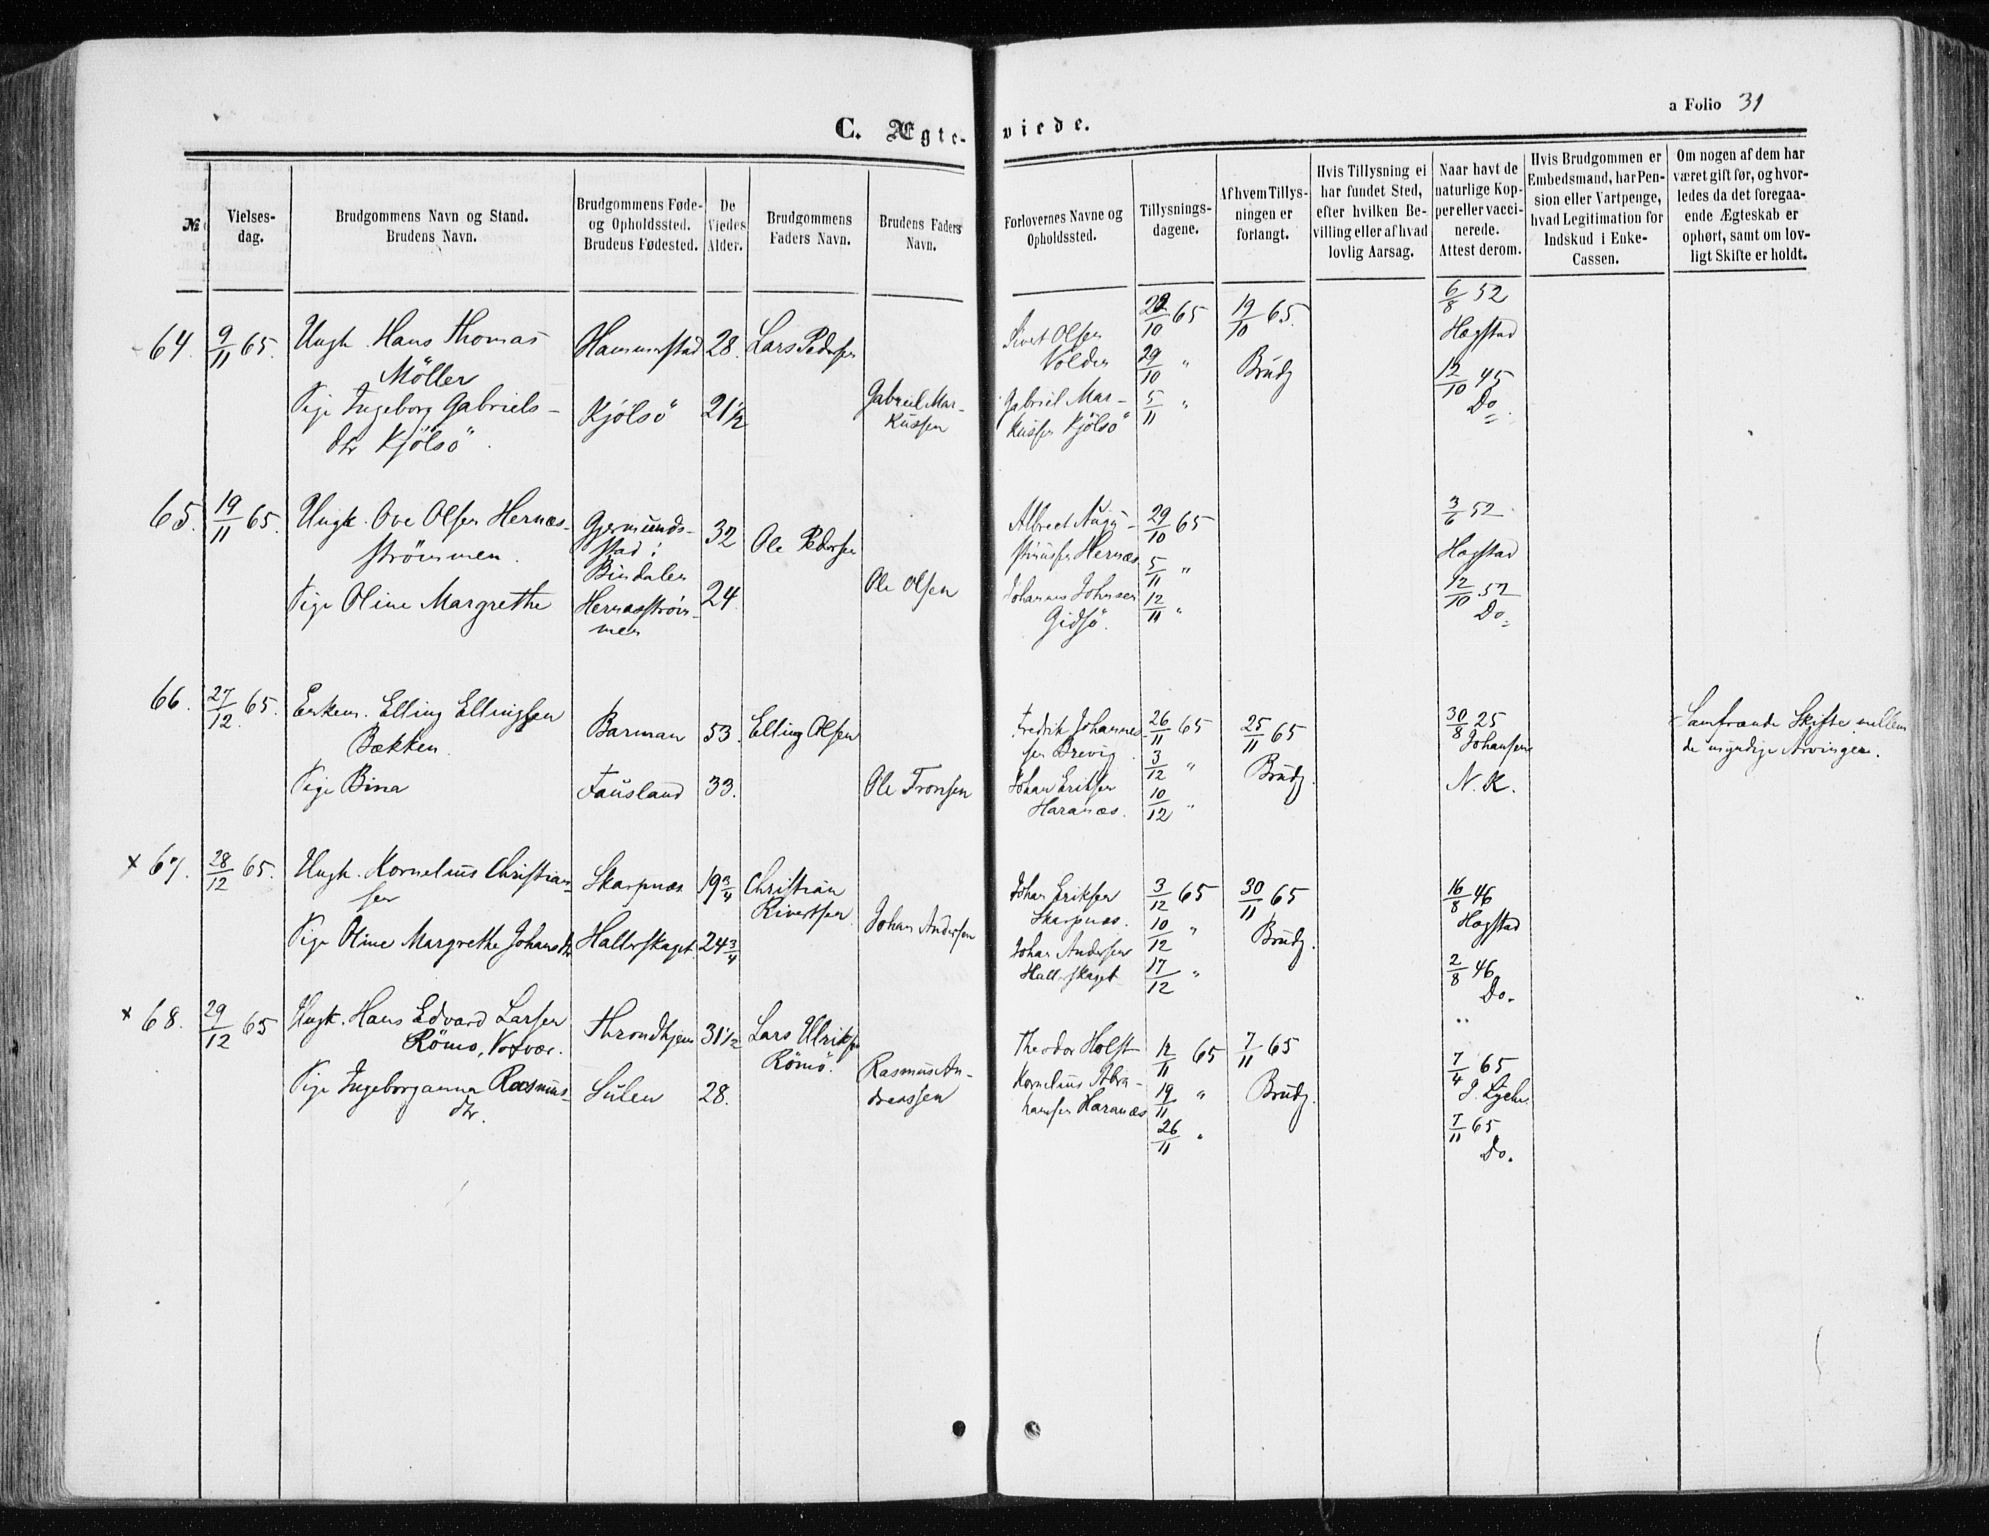 a Folio 31
C. Ægte-viede.
№
Vielses-
dag.
Brudgommens Navn og Stand.
Brudens Navn.
Brudgommens Føde-
og Opholdssted.
Brudens Fødested.
De
Viedes
Alder.
Brudgommens
Faders Navn.
Brudens Faders
Navn.
Forlovernes Navne og
Opholdssted.
Tillysnings-
dagene.
Af hvem Tillys-
ningen er
forlangt.
Hvis Tillysning ei
har fundet Sted,
efter hvilken Be-
villing eller af hvad
lovlig Aarsag.
Naar havt de
naturlige Kop-
per eller vacci-
nerede.
Attest derom.
Hvis Brudgommen er
Embedsmand, har Pen-
sion eller Vartpenge,
hvad Legitimation for
Indskud i Enke-
Cassen.
Om nogen af dem har
været gift før, og hvor-
ledes da det foregaa-
ende Ægteskab er
ophørt, samt om lov-
ligt Skifte er holdt.
64. 9/11 65. Ungk. Hans Thomas
Möller
Hammerstad 28. Lars Pedersen
Pige Ingeborg Gabriels-
dtr Kjölsö.
Kjölsö 21 1/2
Gabriel Mar-
kussen
Sivert Olsen
Volden
Gabriel Mar-
kussen Kjölsö
22/10 65
29/10 "
5/11 "
19/10 65.
Brudg
6/8 52
Hagstad
12/10 45
Do.
65. 19/11 65. Ungk. Ove Olsen Hernæs-
strömmen.
Gjermunds-
stad i
Bindalen
32 Ole Pedersen
Pige Oline Margrethe
Hernæsström-
men
24. Ole Olsen
Albrect Augu-
stinussen Hernæs
Johannes Johnsen
Gidsö.
29/10 65
5/11 "
12/11 "
3/6 52
Hagstad
12/10 52
Do.
66. 27/12 65. Enkem. Elling Ellingsen
Bækken.
Barman 53. Elling Olsen
Pige Bina
Fausland 33. Ole Tronsen
Fredrik Johannes-
sen Brevig
Johan Eriksen
Haranæs.
26/11 65
3/12 "
10/12 "
25/11 65
Brudg.
30/8 25
Johansen
N. K.
Samfrænde Skifte mellem
de myndige Arvinger.
x 67. 28/12 65. Ungk. Kornelius Christian-
sen
Skarpnæs 19 3/4 Christian
Sivertsen
Pige Oline Margrethe Johansdtr
Hallerskaget 24 3/4 Johan Andersen
Johan Eriksen
Skarpnæs.
Johan Andersen
Hallerskaget
3/12 65
10/12 "
17/12 "
30/11 65
Brudg.
16/8 46
Hagstad
2/8 46
Do.
x 68. 29/12 65 Ungk. Hans Edvard Larsen
Römo,
Throndhjem 31 1/2 Lars Ulriksen
Römö.
Pige Ingeborganna Rasmus-
dtr.
Sulen 28. Rasmus An-
dreassen
Theodor Holst
Kornelius Abra-
hamsen Haranæs
12/11 65
19/11 "
26/11 "
7/11 65
Brudg.
"
7/4 65
7/11 65
Do.